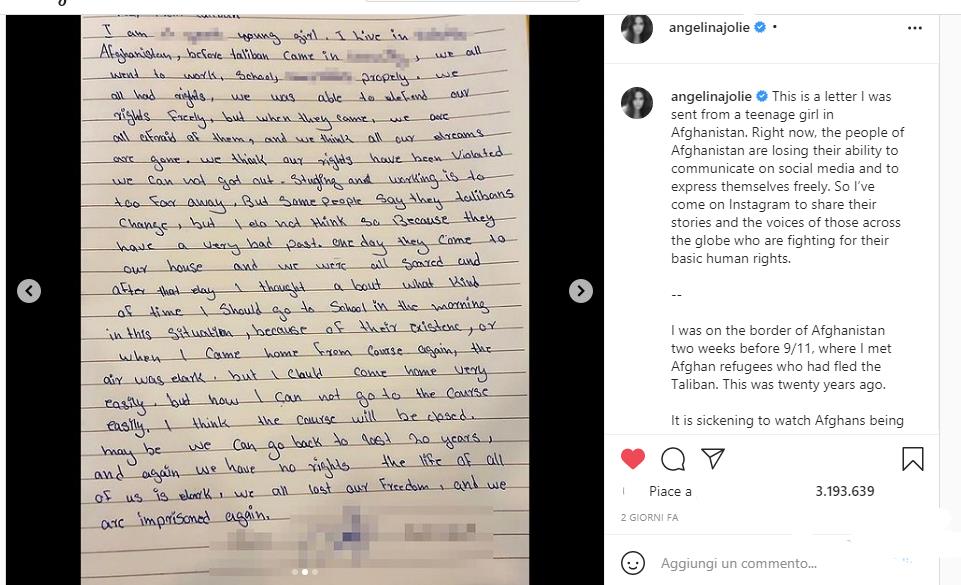 I am a young girl. I live in
Afghanistan, before taliban came in , we all
went to work, School, propely. We
all had rights, we was able to defend our
rights freely, but when they came, we are
all afraid of them, and we think all our dreams
are gone. we think our rights have been Violated
we can not got out. Studing and working is to
too far away. But Some people say they talibans
Change, but I do not think so Because they
have a very bad past. one day they come to
our house and we were all scared and
after that day I thought a bout what Kind
of time I should go to School in the morning
in this situation, because of their existenc, or
when I came home from course again, the
air was dark. but I Clould come home very
easily. but how I can not go to the course
easily. I think the course will be closed.
may be we can go back to last 20 years,
and again we have no rights the life of all
of us is dark, we all lost our freedom, and we
are imprisoned again.
angelinajolie •
angelinajolie This is a letter I was
sent from a teenage girl in
Afghanistan. Right now, the people of
Afghanistan are losing their ability to
communicate on social media and to
express themselves freely. So I've
come on Instagram to share their
stories and the voices of those across
the globe who are fighting for their
basic human rights.
--
I was on the border of Afghanistan
two weeks before 9/11, where I met
Afghan refugees who had fled the
Taliban. This was twenty years ago.
It is sickening to watch Afghans being
Piace a 3.193.639
2 GIORNI FA
Aggiungi un commento...